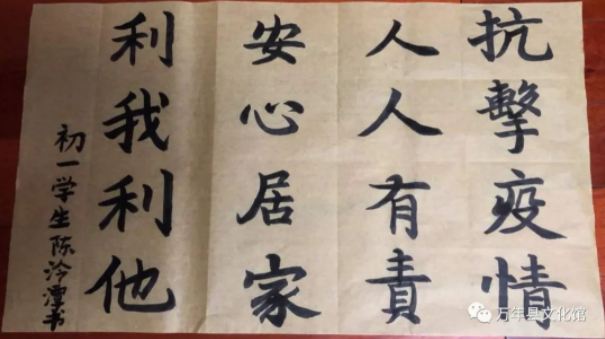 抗擊疫情
人人有責
安心居家
利我利他
初一学生陈泠潭书
万年县文化馆